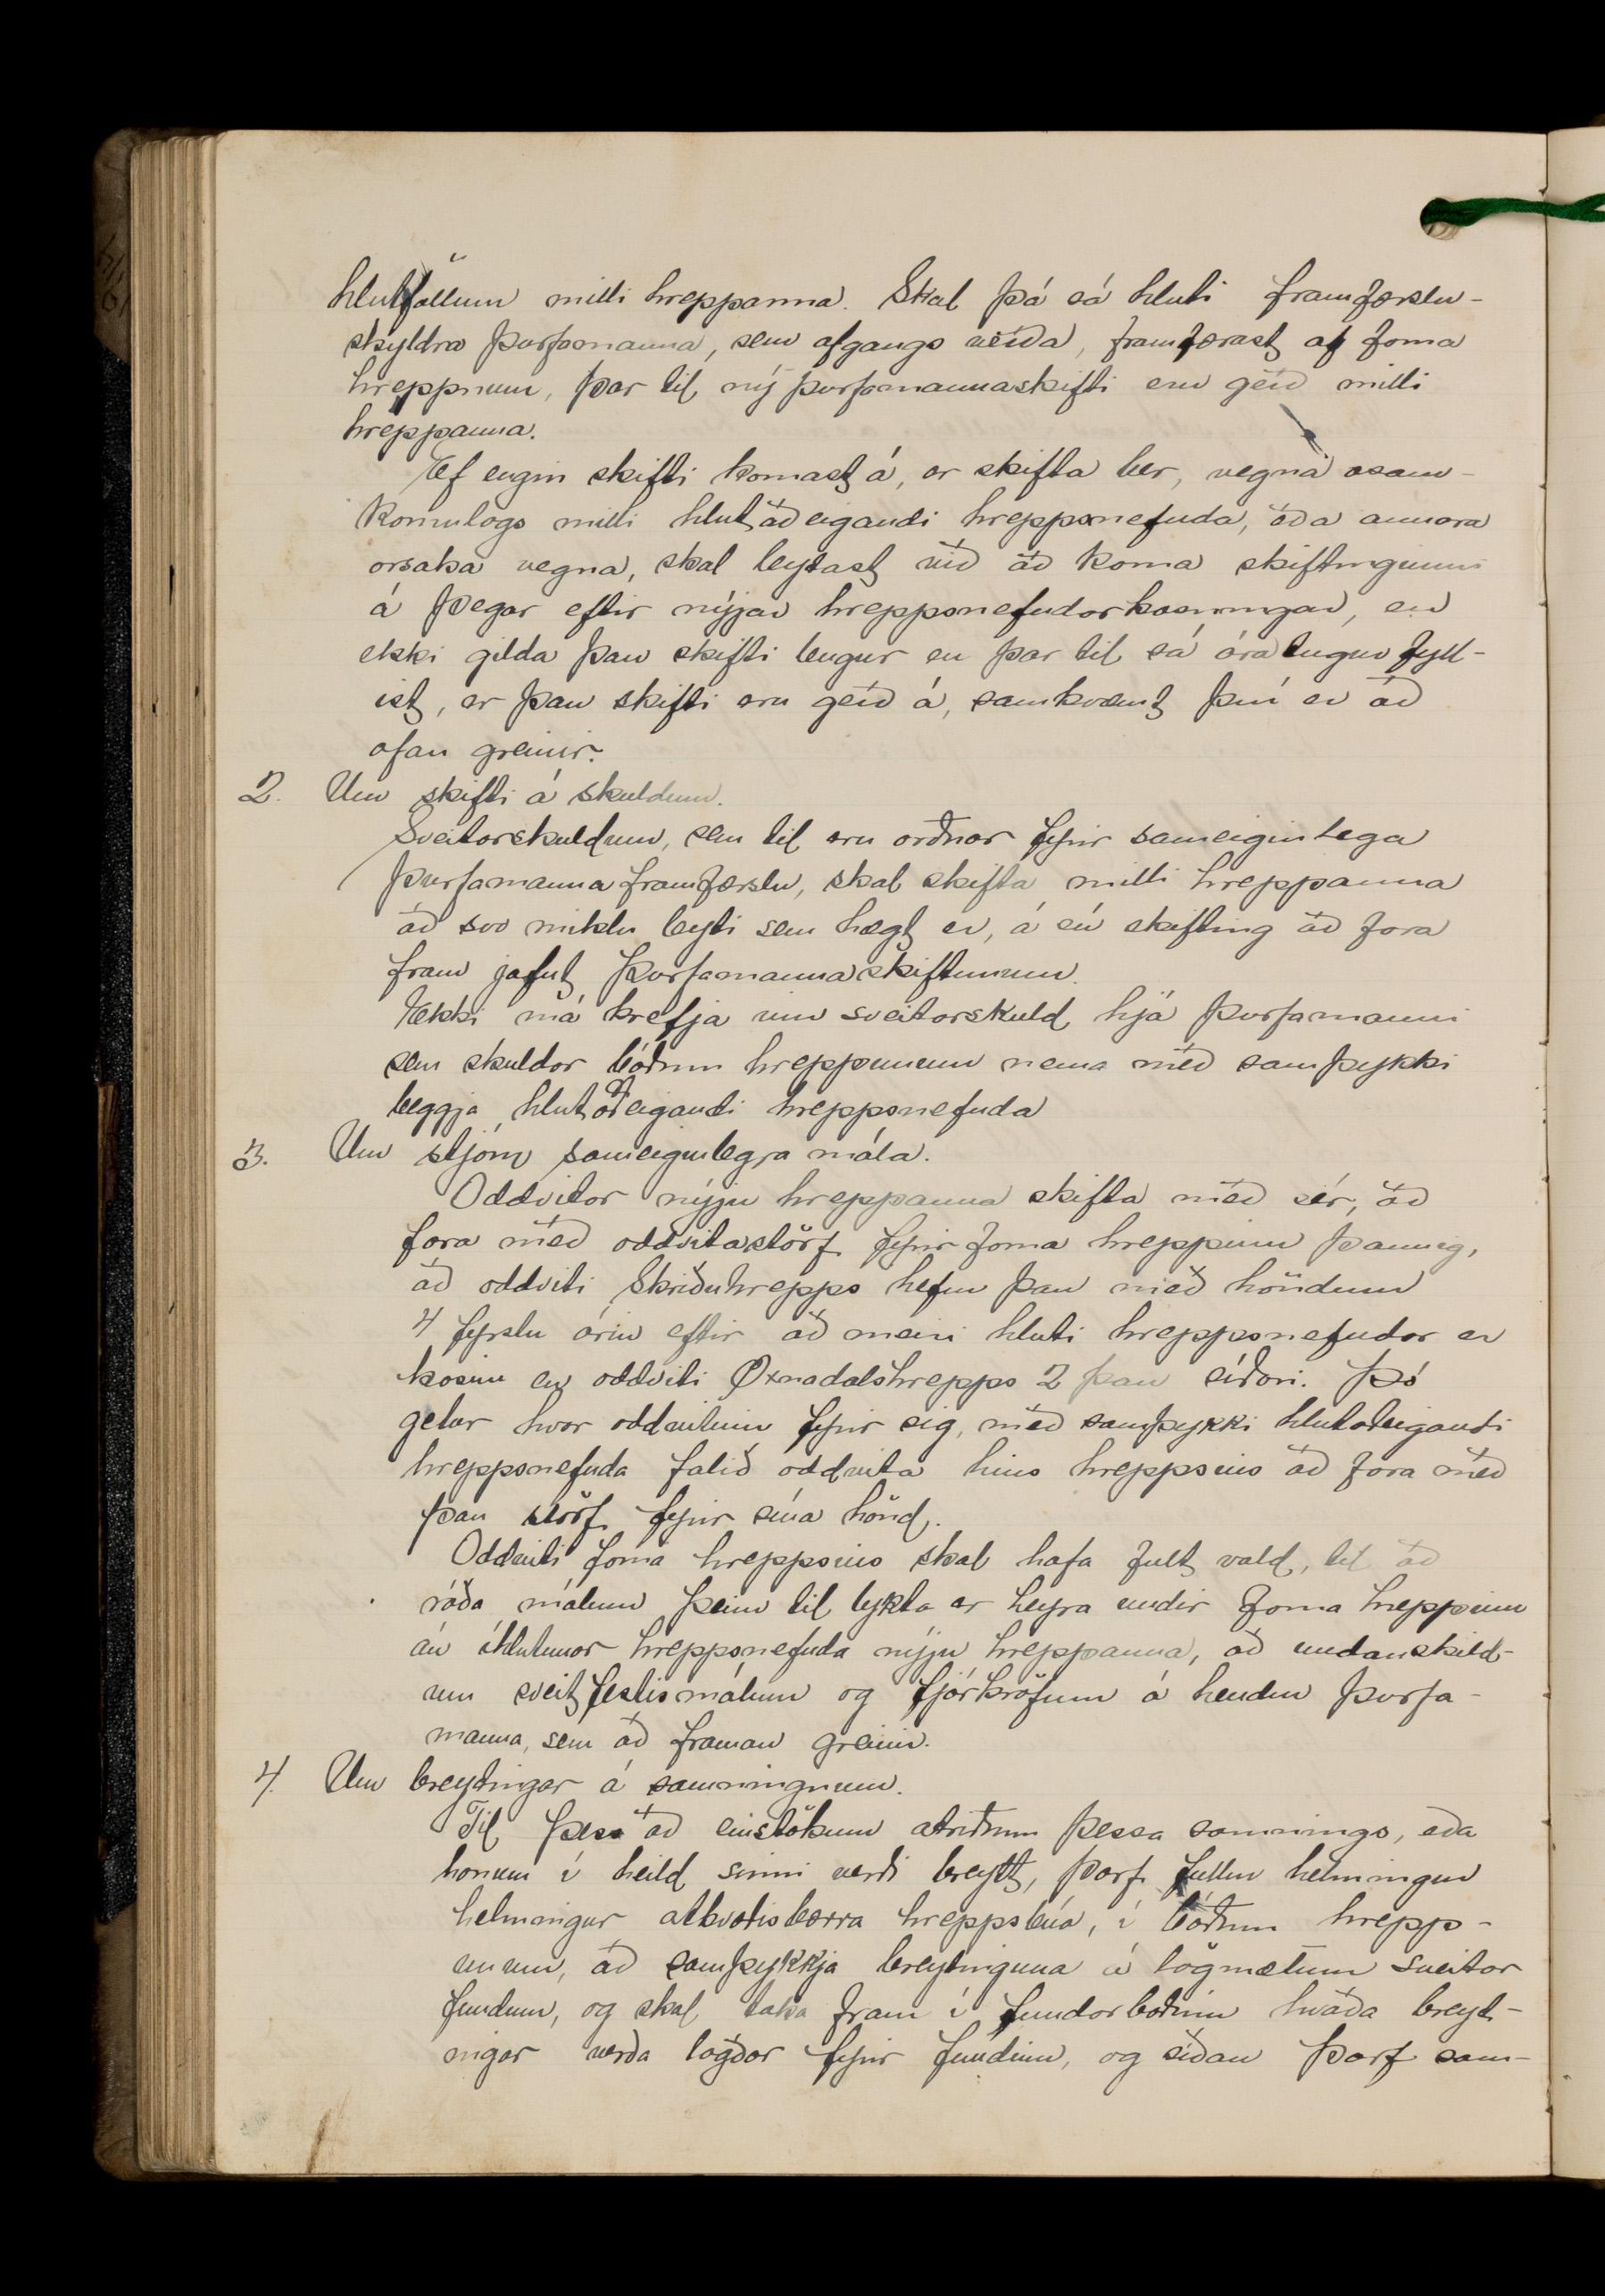 hlutföllum milli hreppanna. Skal þá sá hluti framfærslu-
skyldra þurfamanna, sem afgangs verða, framfærast af forna
hreppnum, þar til ný þurfamannaskifti eru gerð milli
hreppanna.
Ef engin skifti komast á, er skifta ber, vegna ósam-
komulags milli hlutaðeigandi hreppsnefnda, eða annara
orsaka vegna, skal leytast við að koma skiftingunni
á þegar eftir nýjar hreppsnefndarkosningar, en
ekki gilda þau skifti lengur en þar til sá áratugur fyll-
ist, er þau skifti eru gerð á, samkvæmt því er að
ofan greinir.
2. Um skifti á skuldum.
Sveitarskuldum, sem til eru orðnar fyrir sameiginlega
þurfamannaframfærslu, skal skifta milli hreppanna
að svo miklu leyti sem hægt er, á sú skifting að fara
fram jafnt þurfamannaskiftunum.
Ekki má krefja um sveitarskuld hjá þurfamanni
sem skuldar báðum hreppunum nema með samþykki
beggja hlutaðeigandi hreppsnefnda
3. Um stjórn sameiginlegra mála.
Oddvitar nýju hreppanna skifta með sér, að
fara með oddvitastörf fyrir forna hreppinn þannig,
að oddviti Skriðuhrepps hefur þau með höndum
4 fyrstu árin eftir að meiri hluti hreppsnefndar er
kosinn en oddviti Öxnadalshrepps 2 þau síðari. Þó
getur hvor oddvitinn fyrir sig, með samþykki hlutaðeigandi
hreppsnefnda falið oddvita hins hreppsins að fara með
þau störf fyrir sína hönd.
Oddviti forna hreppsins skal hafa fult vald, til að
ráða málum þeim til lykta er heyra undir forna hreppinn
án íhlutunar hreppsnefnda nýju hreppanna, að undanskild-
um sveitfestismálum og fjárkröfum á hendur þurfa-
manna, sem að framan greinir.
4. Um breytingar á samningnum.
Til þess að einstökum atriðum þessa samnings, eða
honum í heild sinni verði breytt, þarf fullur helmingur
helmingur atkvæðisbærra hreppsbúa, í báðum hrepp-
unum, að samþykkja breytinguna á lögmætum sveitar
fundum, og skal taka fram í fundarboðinu hvaða breyt-
ingar verða lagðar fyrir fundinn, og síðan þarf sam-